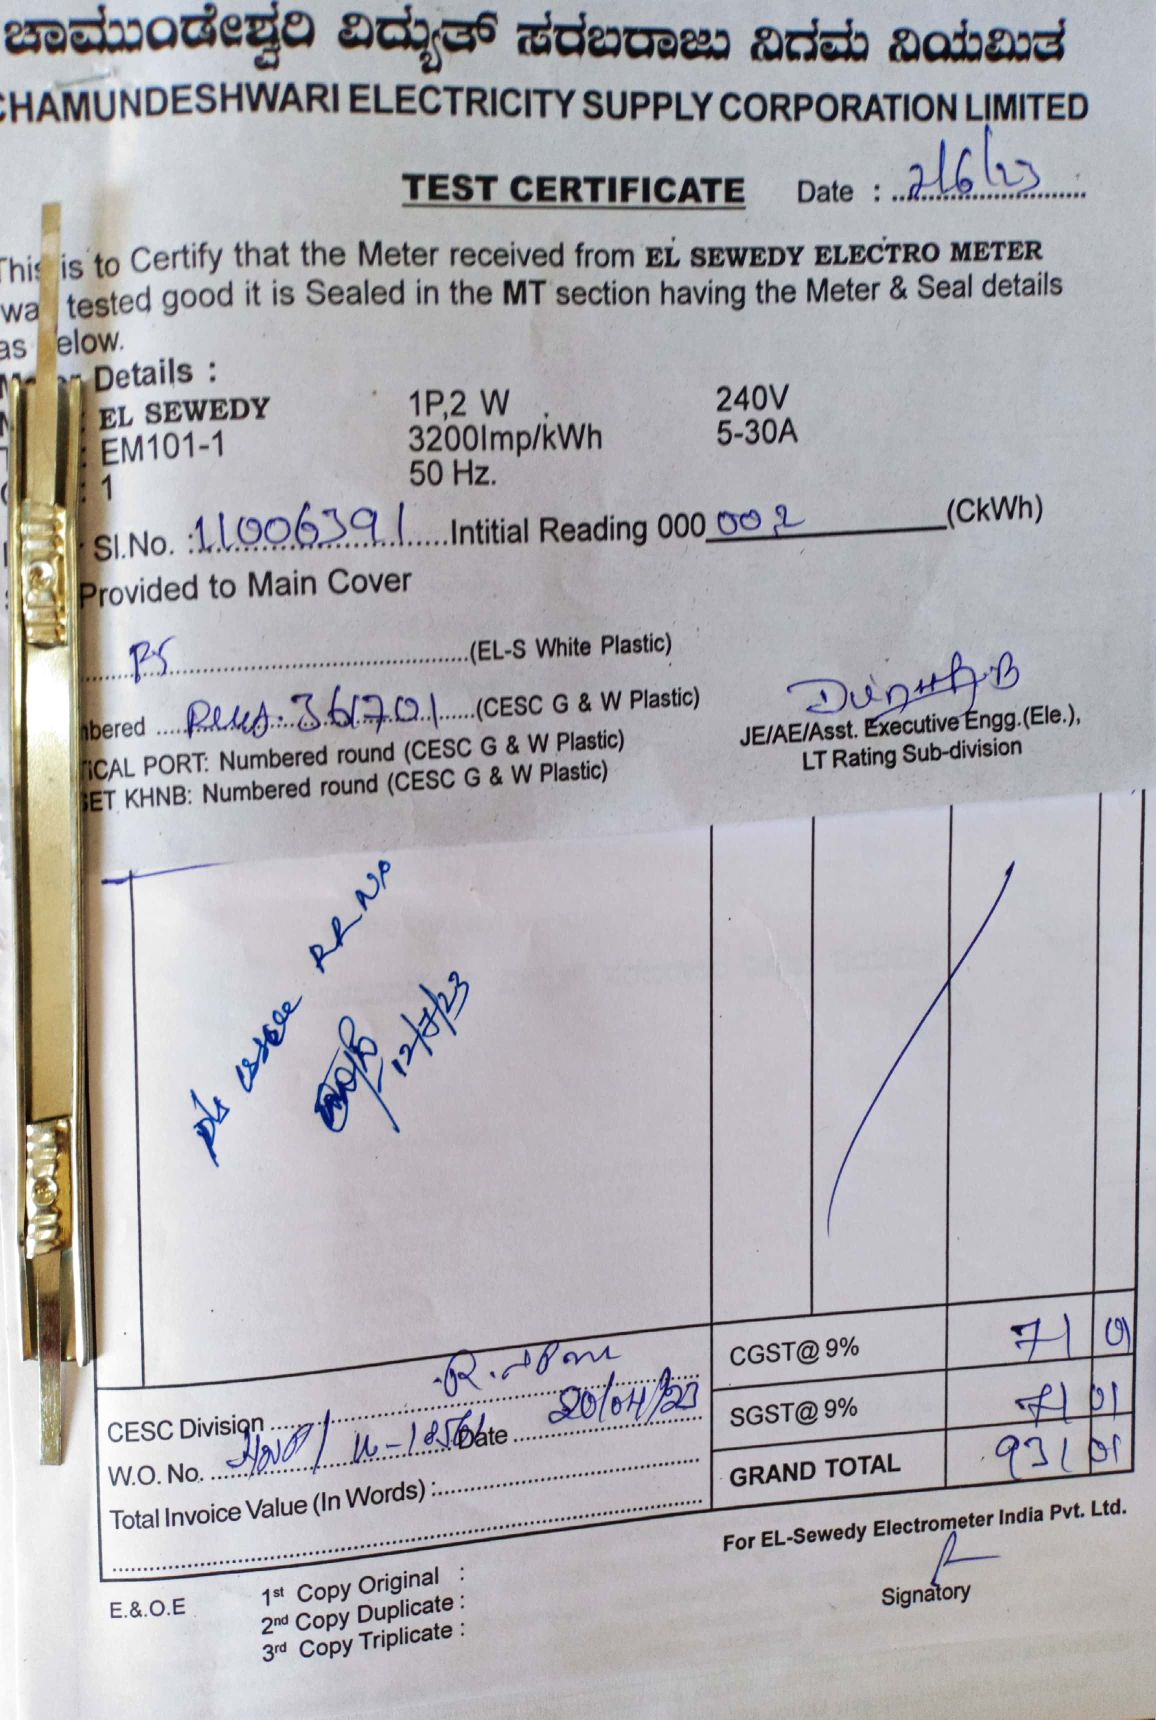 ಚಾಮುಂಡೇಶ್ವರಿ ವಿದ್ಯುತ್ ಸರಬರಾಜು ನಿಗಮ ನಿಯಮಿತ
CHAMUNDESHWARI ELECTRICITY SUPPLY CORPORATION LIMITED
TEST CERTIFICATE Date : 2/6/23
This is to Certify that the Meter received from EL SEWEDY ELECTRO METER
was tested good it is Sealed in the MT section having the Meter & Seal details
as below.
Details :
: EL SEWEDY 1P,2 W 240V
: EM101-1 3200Imp/kWh 5-30A
: 1 50 Hz.
Sl.No. : 11006391 Intitial Reading 000 002 (CkWh)
Provided to Main Cover
PS (EL-S White Plastic)
361701 (CESC G & W Plastic)
JE/AE/Asst. Executive Engg.(Ele.),
PORT: Numbered round (CESC G & W Plastic)
LT Rating Sub-division
KHNB: Numbered round (CESC G & W Plastic)
RR No
12/7/23
CGST@ 9% 71 01
CESC Division
SGST@ 9% 71 01
W.O. No. Date 20/04/23
GRAND TOTAL 931 01
Total Invoice Value (In Words) :
For EL-Sewedy Electrometer India Pvt. Ltd.
Signatory
E.&.O.E 1st Copy Original :
2nd Copy Duplicate :
3rd Copy Triplicate :